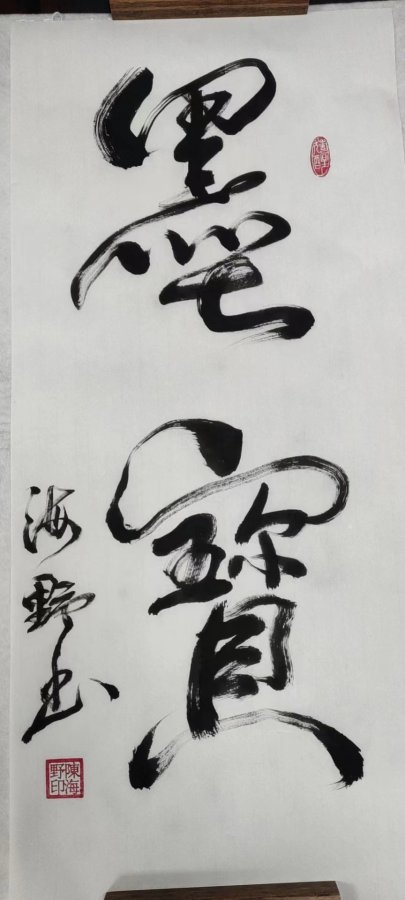 墨寶
海野书
陳海野印